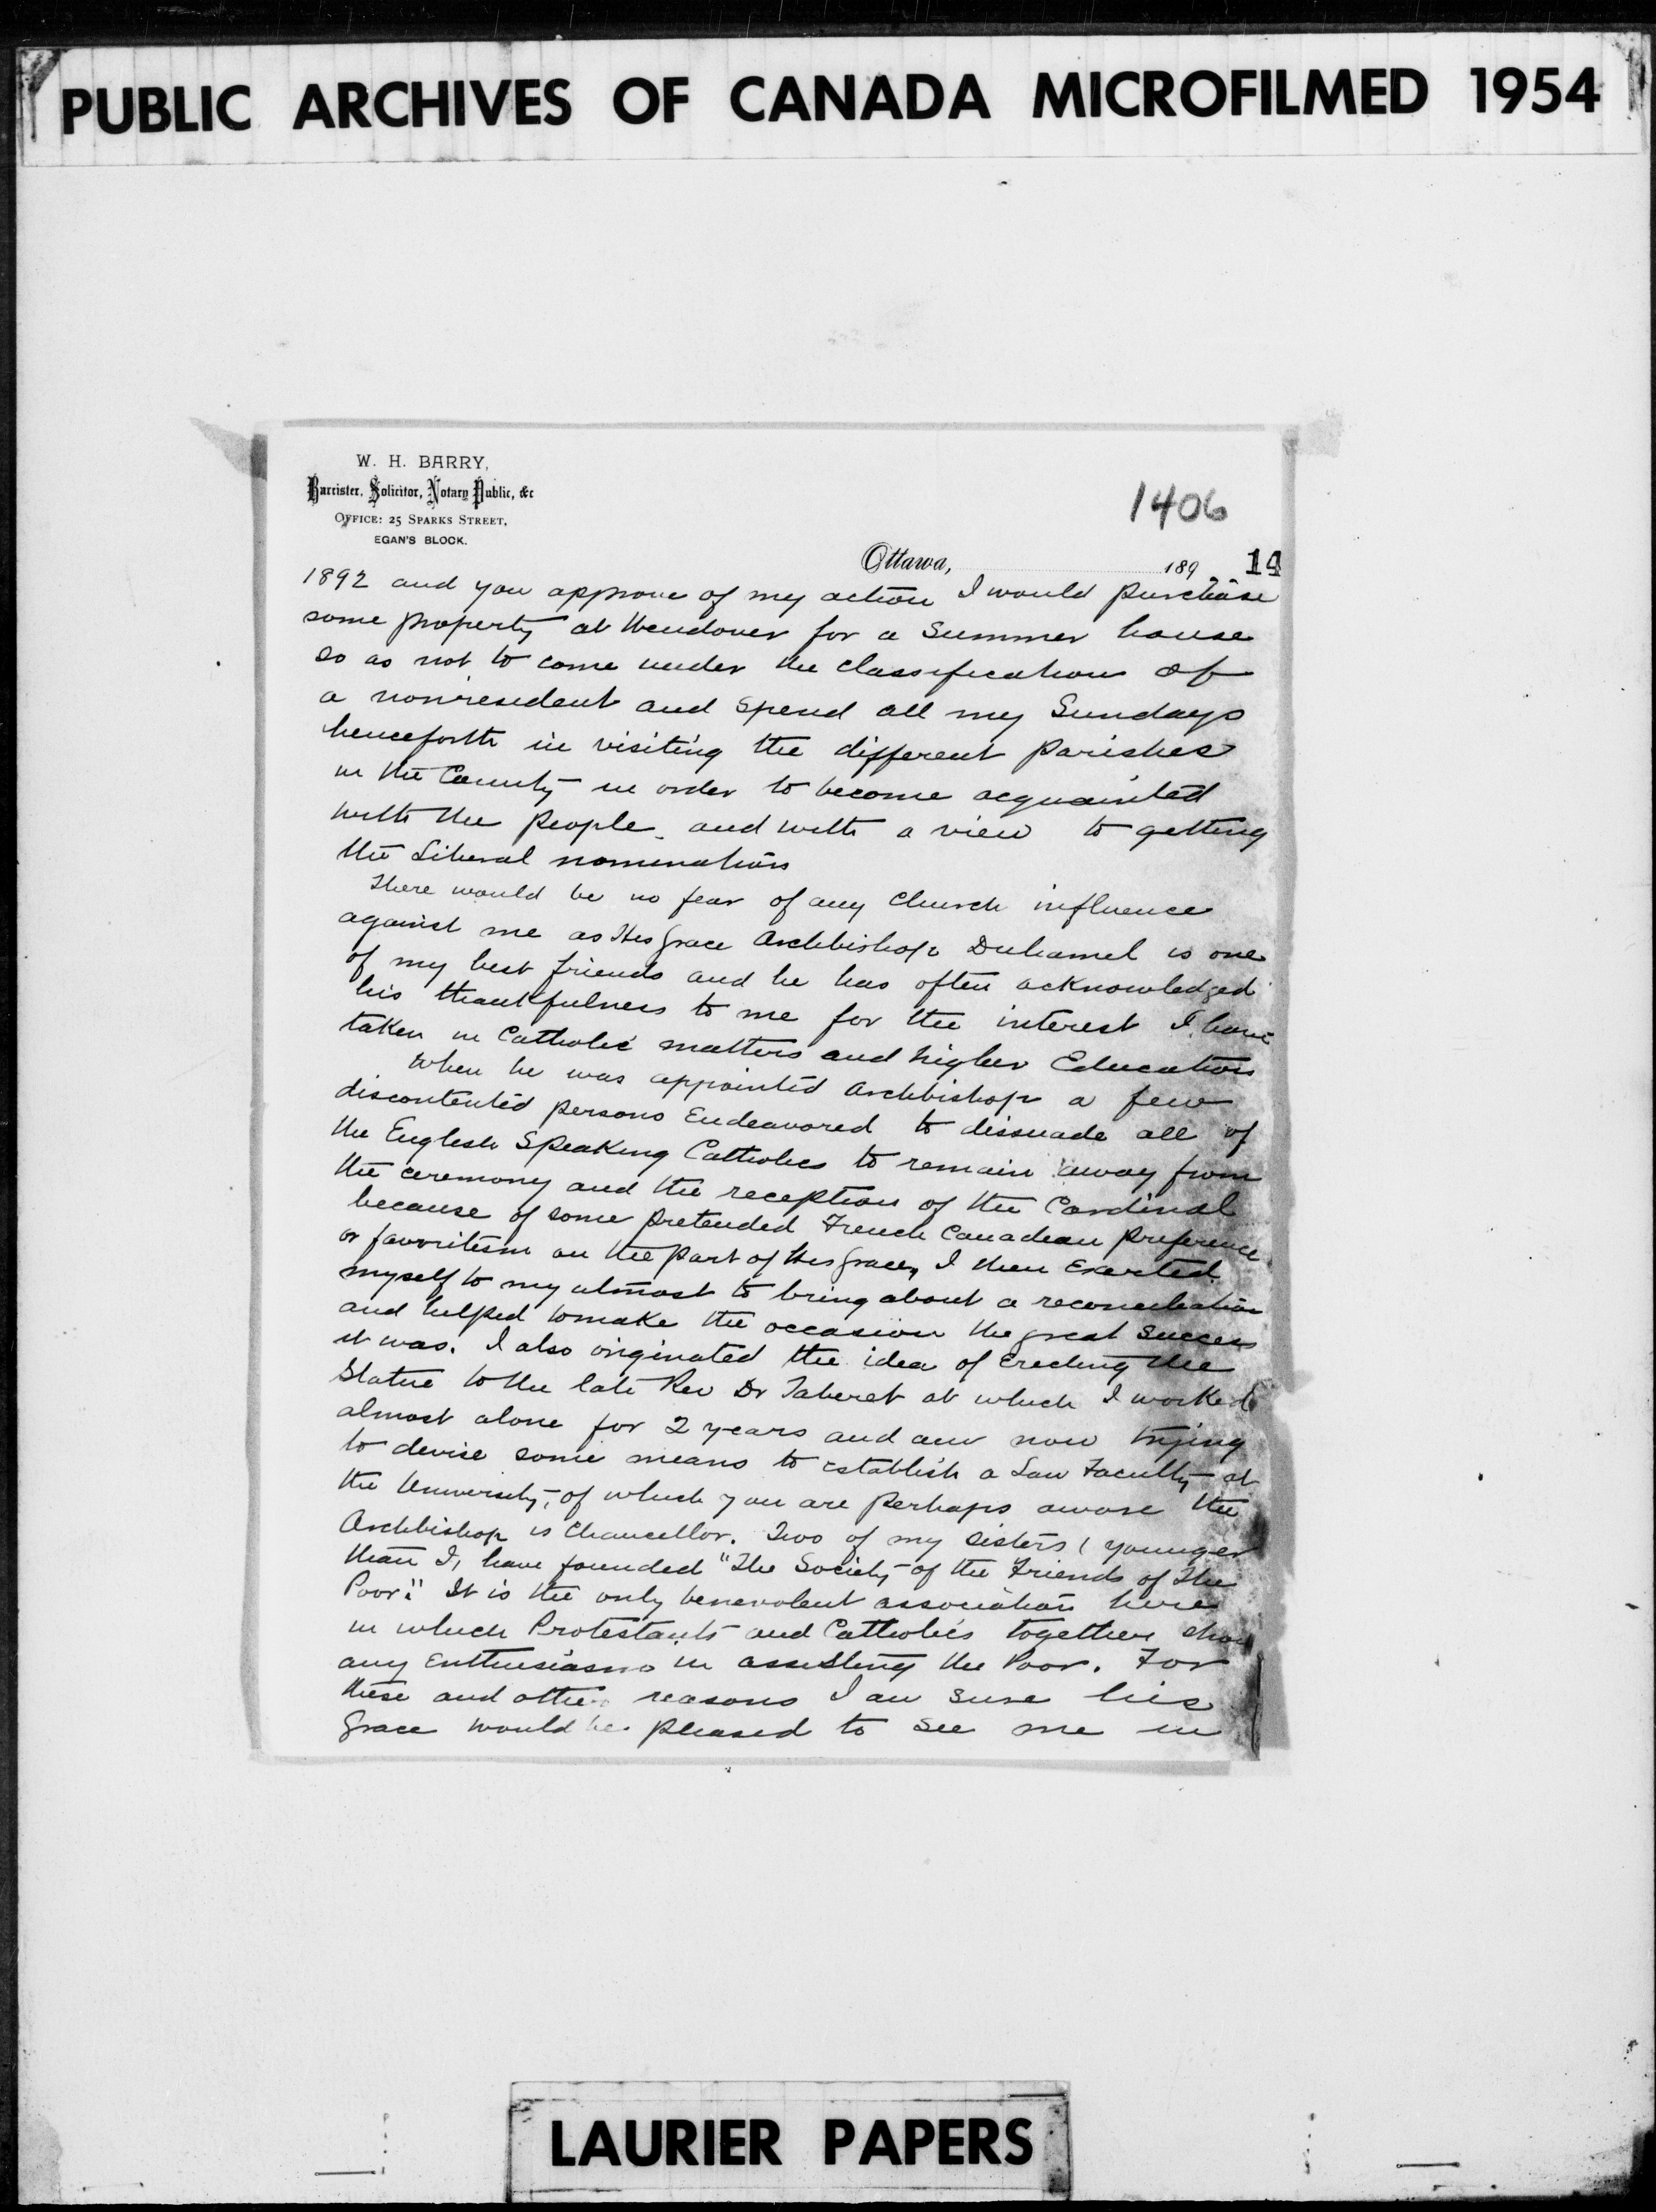 PUBLIC ARCHIVES OF CANADA MICROFILMED 1954
W. H. BARRY,
Barrister, Solicitor, Notary Public, &c
OFFICE: 25 SPARKS STREET,
EGAN'S BLOCK.
1406
Ottawa, 189 14
1892 and you approve of my action I would purchase
some property at Wendover for a Summer house
so as not to come under the classification of
a nonresident and spend all my Sundays
henceforth in visiting the different parishes
in the County in order to become acquainted
with the people and with a view to getting
the Liberal nomination
There would be no fear of any Church influence
against me as His Grace Archbishop Duhamel is one
of my best friends and he has often acknowledged
his thankfulness to me for the interest I have
taken in Catholic matters and higher Education
When he was appointed Archbishop a few
discontented persons Endeavored to dissuade all of
the English Speaking Catholics to remain away from
the ceremony and the reception of the Cardinal
because of some pretended French Canadian preference
or favoritism on the part of His Grace, I then Exerted
myself to my utmost to bring about a reconciliation
and helped to make the occasion the great success
it was. I also originated the idea of Erecting the
Statue to the late Rev Dr Taberet at which I worked
almost alone for 2 years and am now trying
to devise some means to establish a Law Faculty at
the University, of which you are perhaps aware the
Archbishop is Chancellor. Two of my sisters (younger
than I, have founded "The Society of the Friends of The
Poor." It is the only benevolent association here
in which Protestants and Catholics together show
any Enthusiasm in assisting the Poor. For
these and other reasons I am sure his
Grace would be pleased to see me in
LAURIER PAPERS